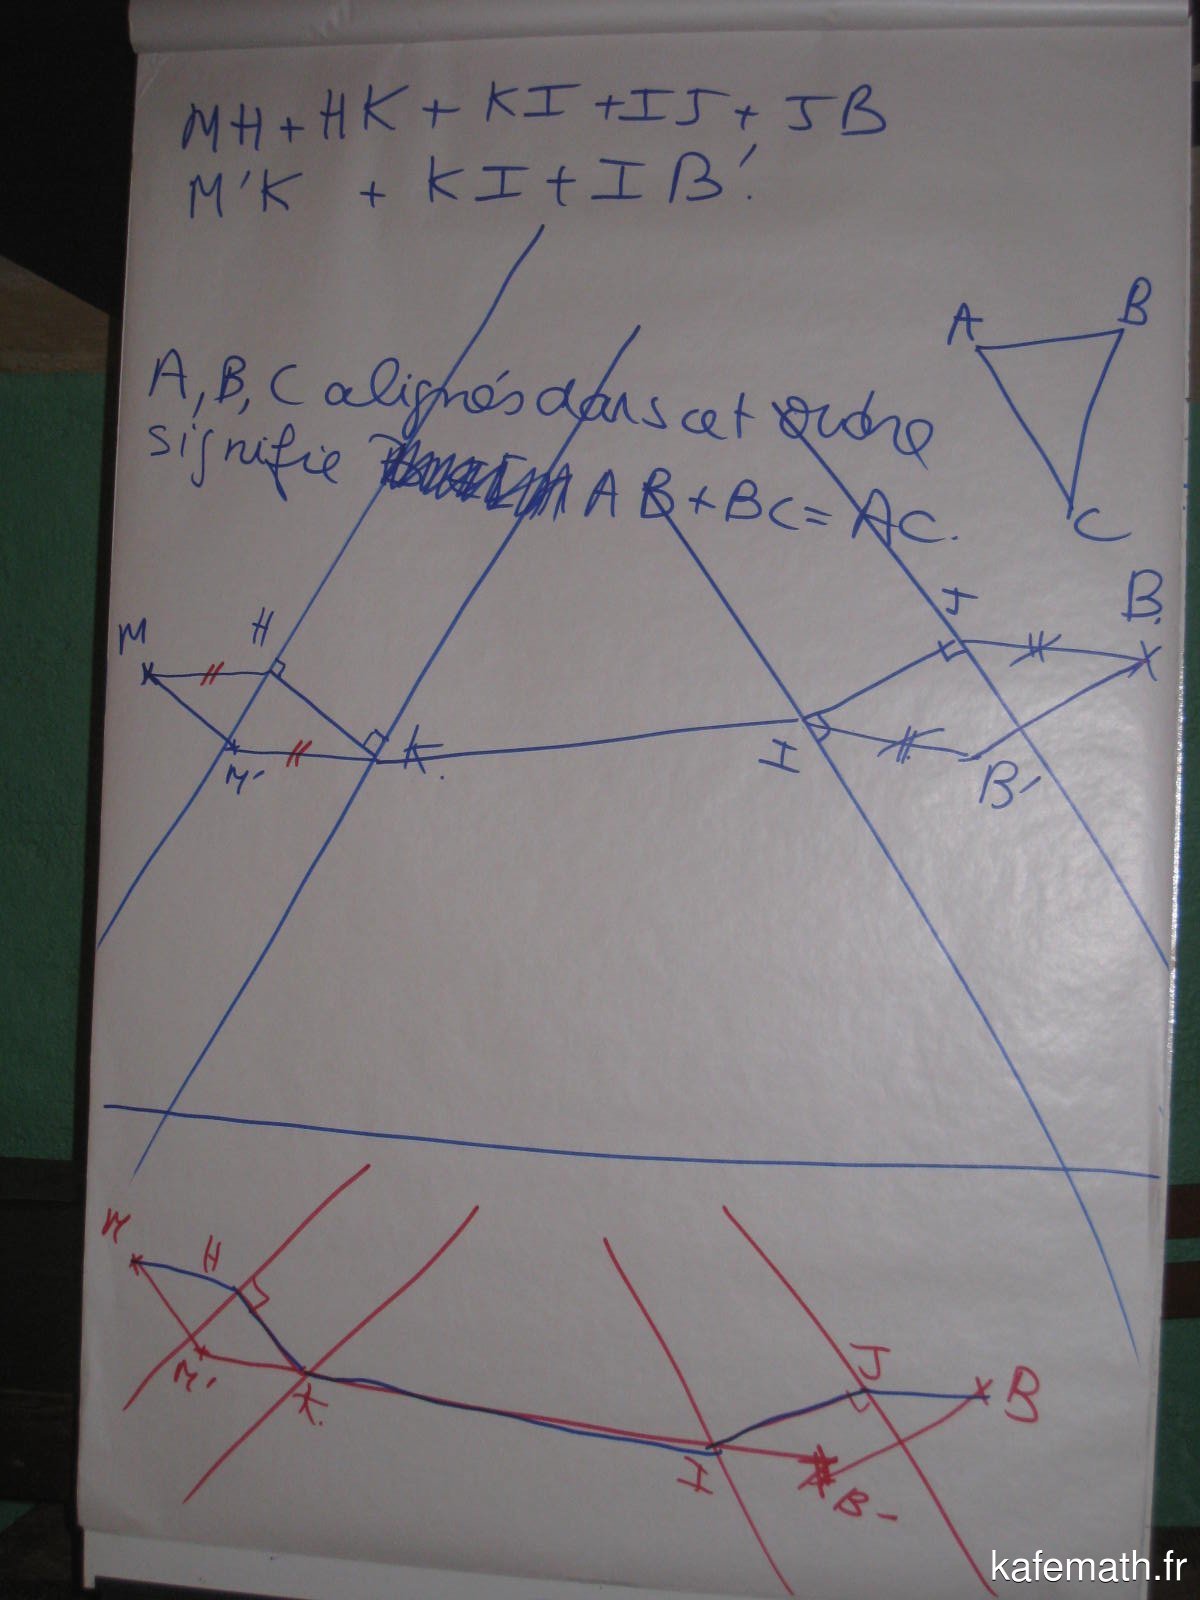 MH + HK + KI + IJ + JB
M'K + KI + IB'.
A, B, C alignés dans cet ordre
signifie AB + BC = AC.
A
B
C
M
H
M'
K.
I
J
B.
B'
M
H
M'
K.
I
J
B
B-
kafemath.fr